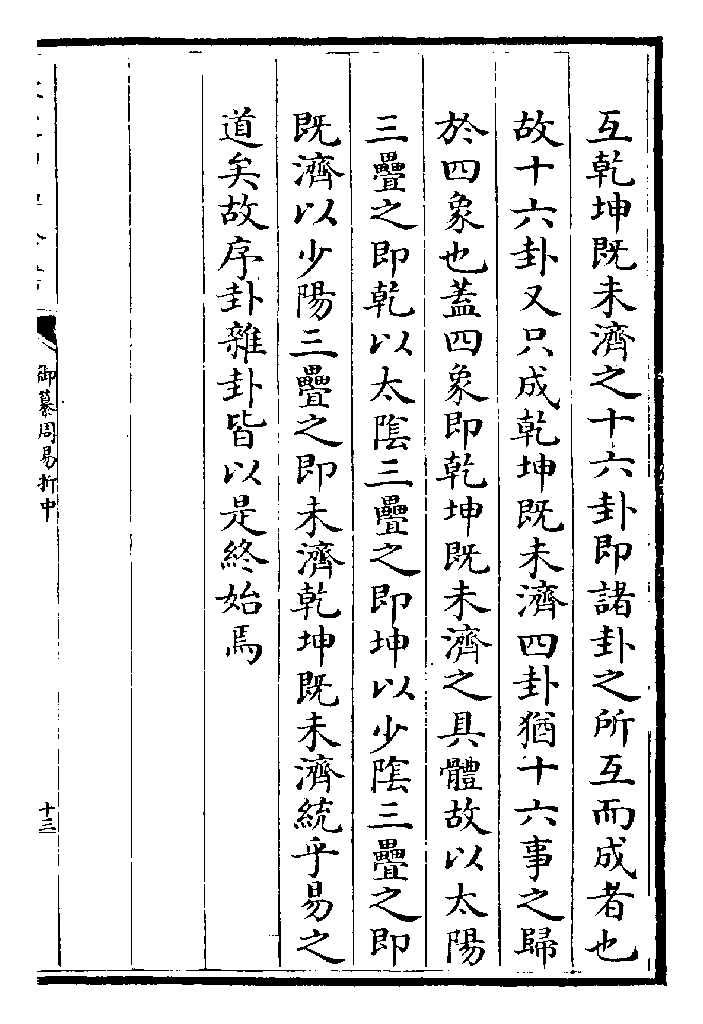 互乾坤既未濟之十六卦即諸卦之所互而成者也
故十六卦又只成乾坤既未濟四卦猶十六事之歸
於四象也蓋四象即乾坤既未濟之具體故以太陽
三疊之即乾以太陰三疊之即坤以少陰三疊之即
既濟以少陽三疊之即未濟乾坤既未濟統乎易之
道矣故序卦雜卦皆以是終始焉
御纂周易折中
十三